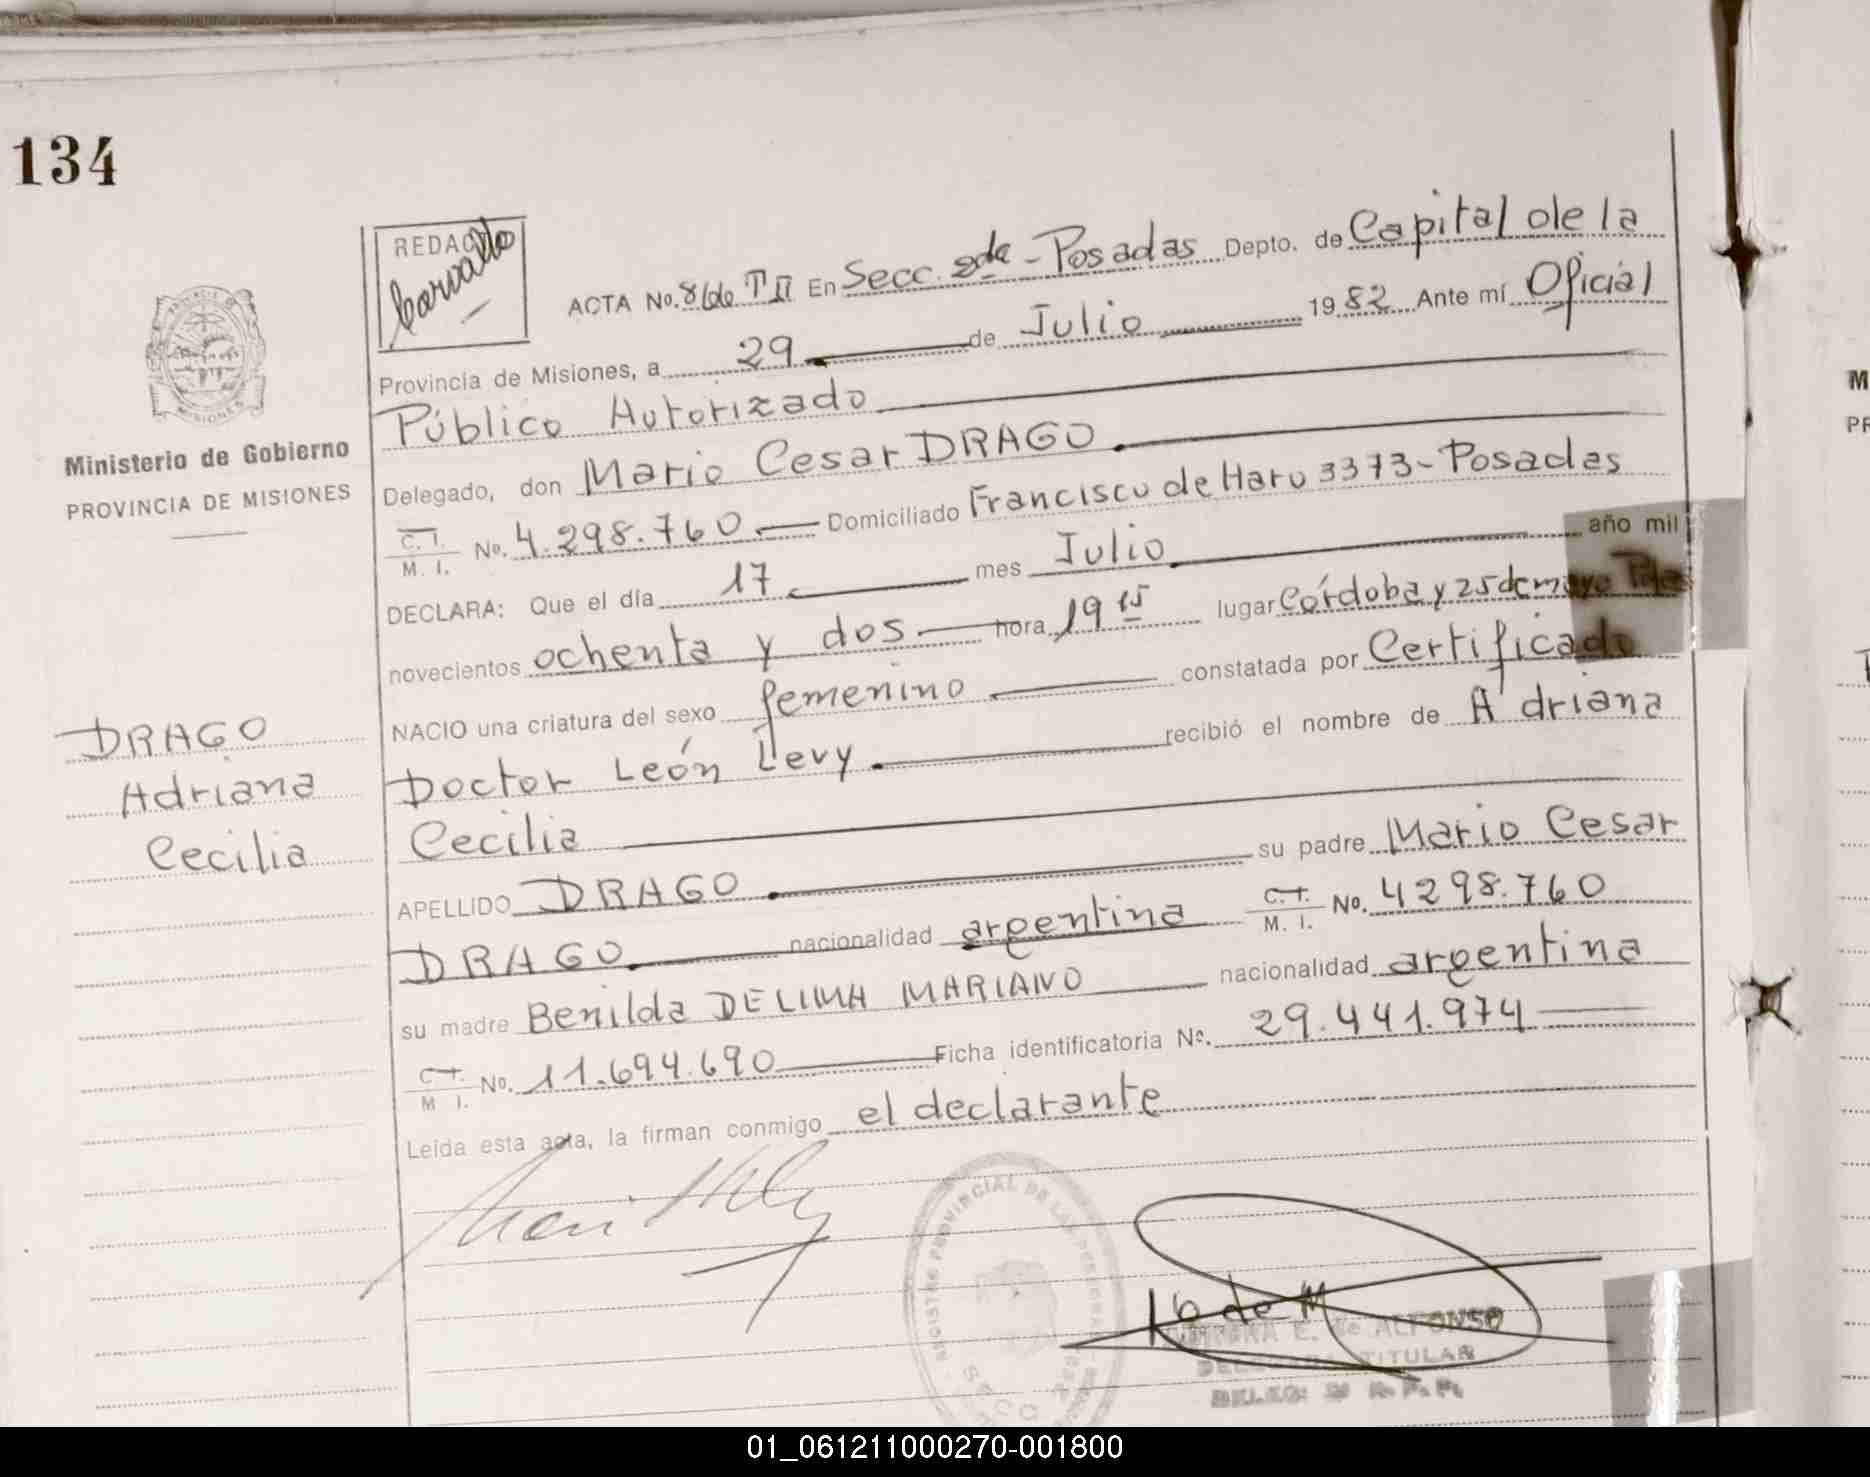 134
REDACTO
Carvallo
ACTA No. 866 T II En Secc. 2da - Posadas Depto. de Capital de la
Provincia de Misiones, a 29 de Julio 1982 Ante mí Oficial
Público Autorizado
Delegado, don Mario Cesar DRAGO
C.I. M. I. No. 4.298.760 Domiciliado Francisco de Haro 3373 - Posadas
DECLARA: Que el día 17 mes Julio año mil
novecientos ochenta y dos hora 19 15 lugar Córdoba y 25 de mayo Pdas
NACIO una criatura del sexo femenino constatada por Certificado
Doctor León Levy recibió el nombre de Adriana
Cecilia
APELLIDO DRAGO su padre Mario Cesar
DRAGO nacionalidad argentina C.I. M. I. No. 4298.760
su madre Benilda DE LIMA MARIANO nacionalidad argentina
C.I. M I. No. 11.694.690 Ficha identificatoria Nº. 29.441.974
Leída esta acta, la firman conmigo el declarante
PROVINCIA DE MISIONES
Ministerio de Gobierno
PROVINCIA DE MISIONES
DRAGO
Adriana
Cecilia
REGISTRO PROVINCIAL DE LAS PERSONAS
E. de ALFONSO
DELEGADA TITULAR
M
PR
01_061211000270-001800